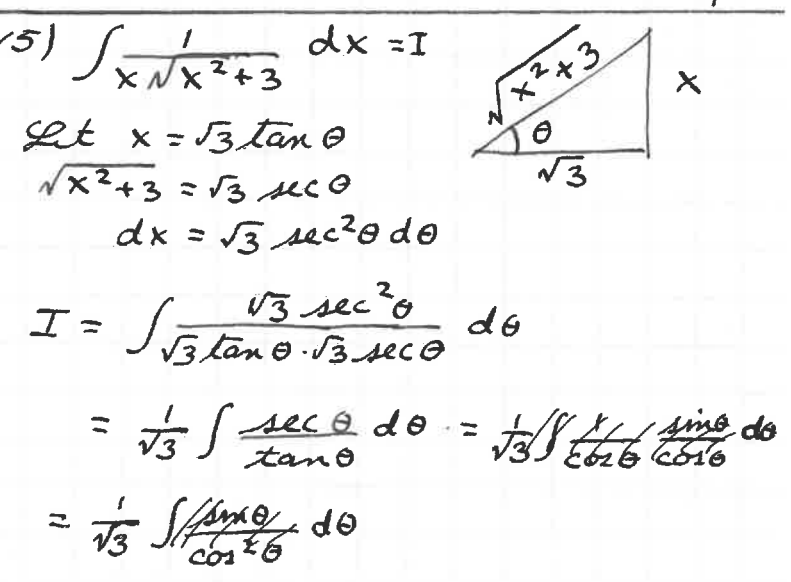 5) ∫ 1/(x√(x²+3)) dx = I
√(x²x3)
x
θ
√3
Let x = √3 tan θ
√(x²+3) = √3 sec θ
dx = √3 sec²θ dθ
I = ∫ (√3 sec²θ)/(√3 tan θ · √3 sec θ) dθ
= 1/√3 ∫ (sec θ)/(tan θ) dθ = 1/√3 ∫ 1/(cos θ) (sin θ)/(cos θ) dθ
= 1/√3 ∫ (sin θ)/(cos²θ) dθ